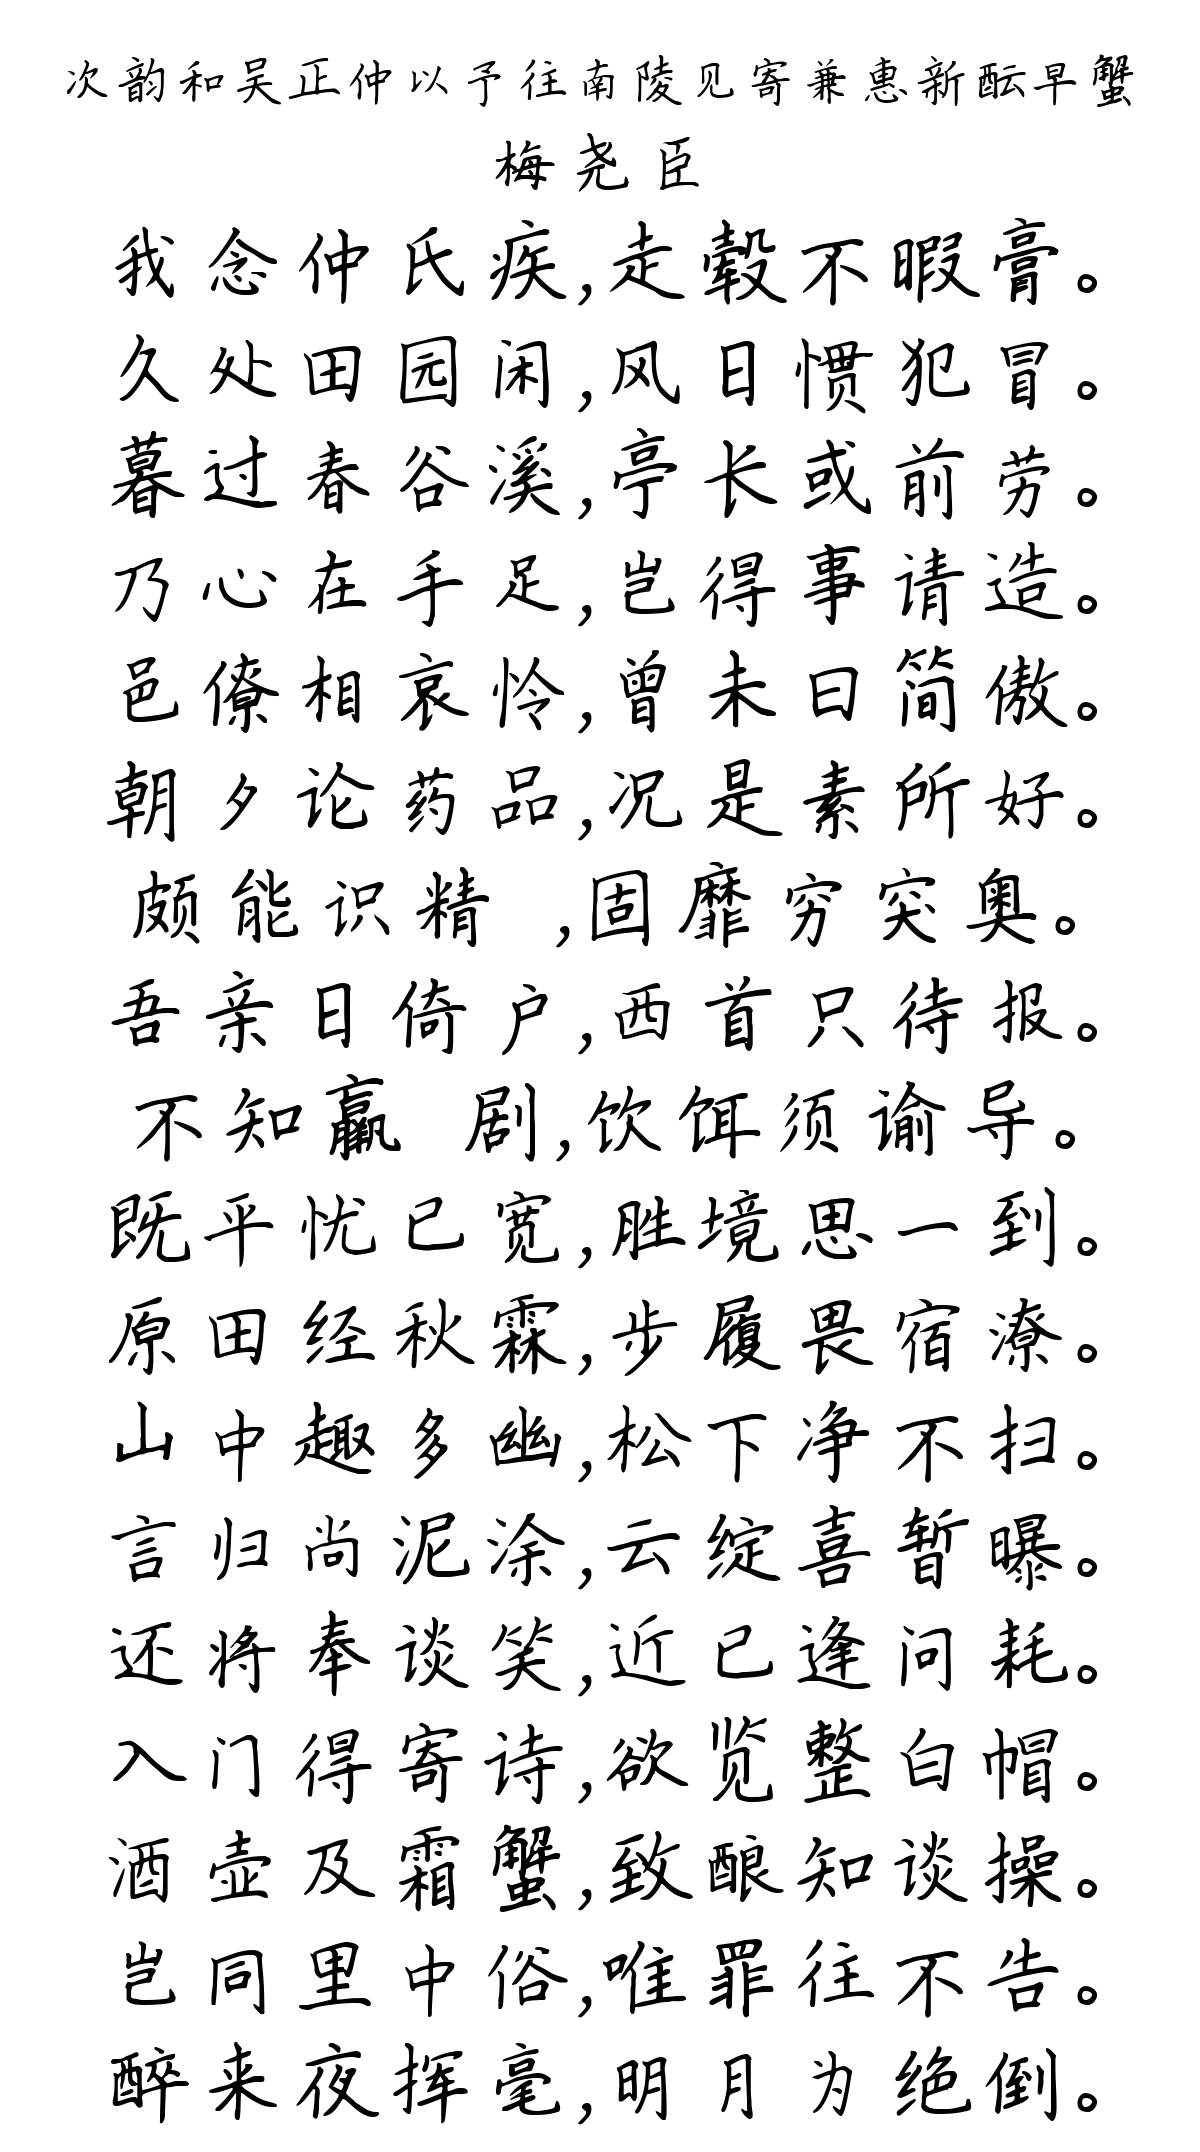 次韵和吴正仲以予往南陵见寄兼惠新酝早蟹
梅尧臣
我念仲氏疾,走毂不暇膏。
久处田园闲,风日惯犯冒。
暮过春谷溪,亭长或前劳。
乃心在手足,岂得事请造。
邑僚相哀怜,曾未曰简傲。
朝夕论药品,况是素所好。
颇能识精 ,固靡穷突奥。
吾亲日倚户,西首只待报。
不知羸 剧,饮饵须谕导。
既平忧已宽,胜境思一到。
原田经秋霖,步履畏宿潦。
山中趣多幽,松下净不扫。
言归尚泥涂,云绽喜暂曝。
还将奉谈笑,近已逢问耗。
入门得寄诗,欲览整白帽。
酒壶及霜蟹,致酿知谈操。
岂同里中俗,唯罪往不告。
醉来夜挥毫,明月为绝倒。